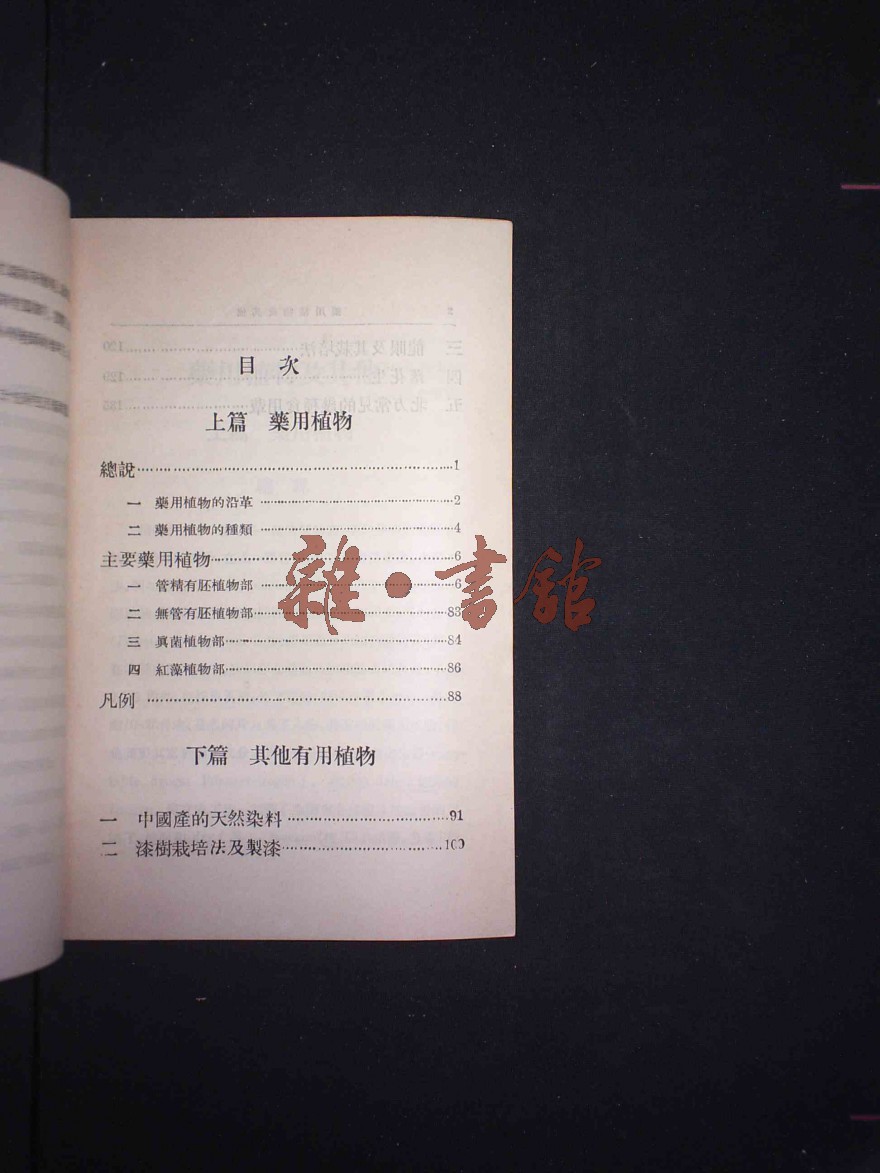 目 次
上篇 藥用植物
總說……1
一 藥用植物的沿革……2
二 藥用植物的種類……4
主要藥用植物……6
一 管精有胚植物部……6
二 無管有胚植物部……83
三 眞菌植物部……84
四 紅藻植物部……86
凡例……88
下篇 其他有用植物
一 中國產的天然染料……91
二 漆樹栽培法及製漆……100
雜·書館